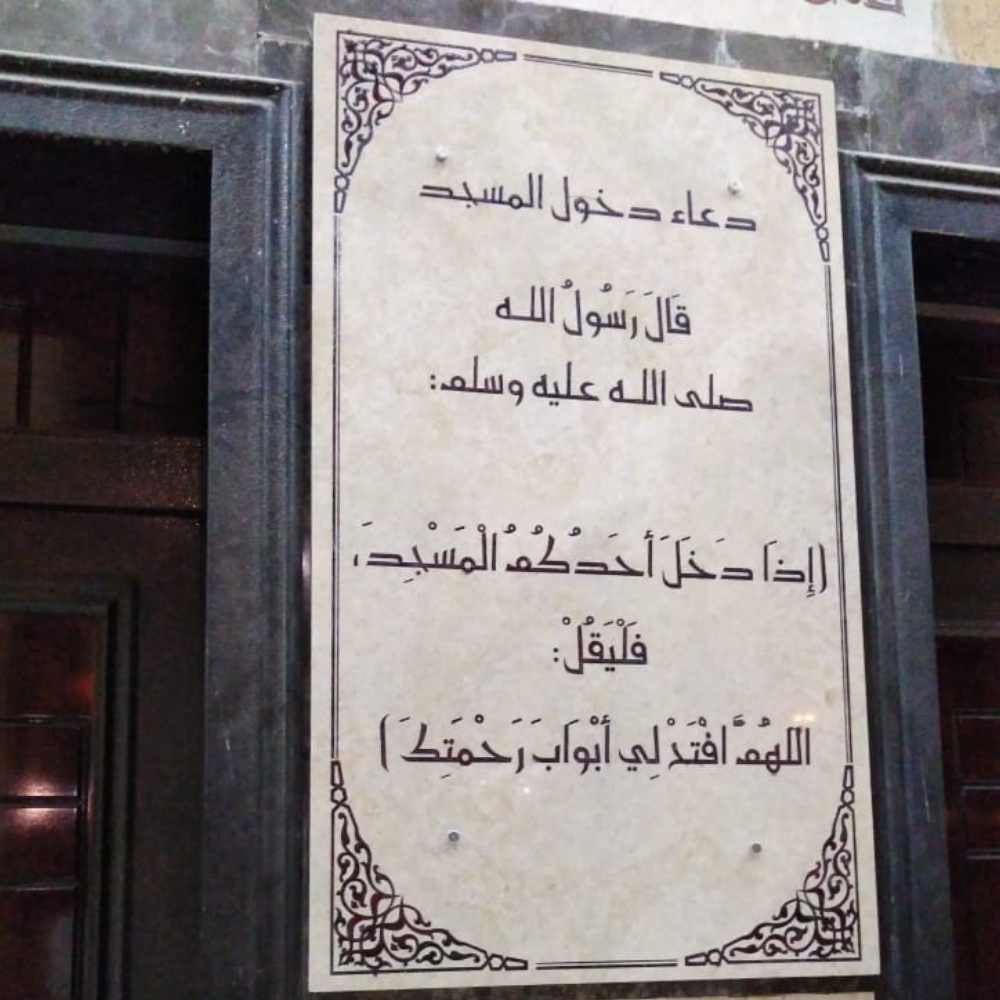 دعاء دخول المسجد
قَالَ رَسُولُ اللـه
صلى اللـه عليه وسلم:
(إِذَا دَخَلَ أَحَدُكُمُ الْمَسْجِدَ،
فَلْيَقُلْ:
اللهُمَّ افْتَحْ لِي أَبْوَابَ رَحْمَتِكَ)